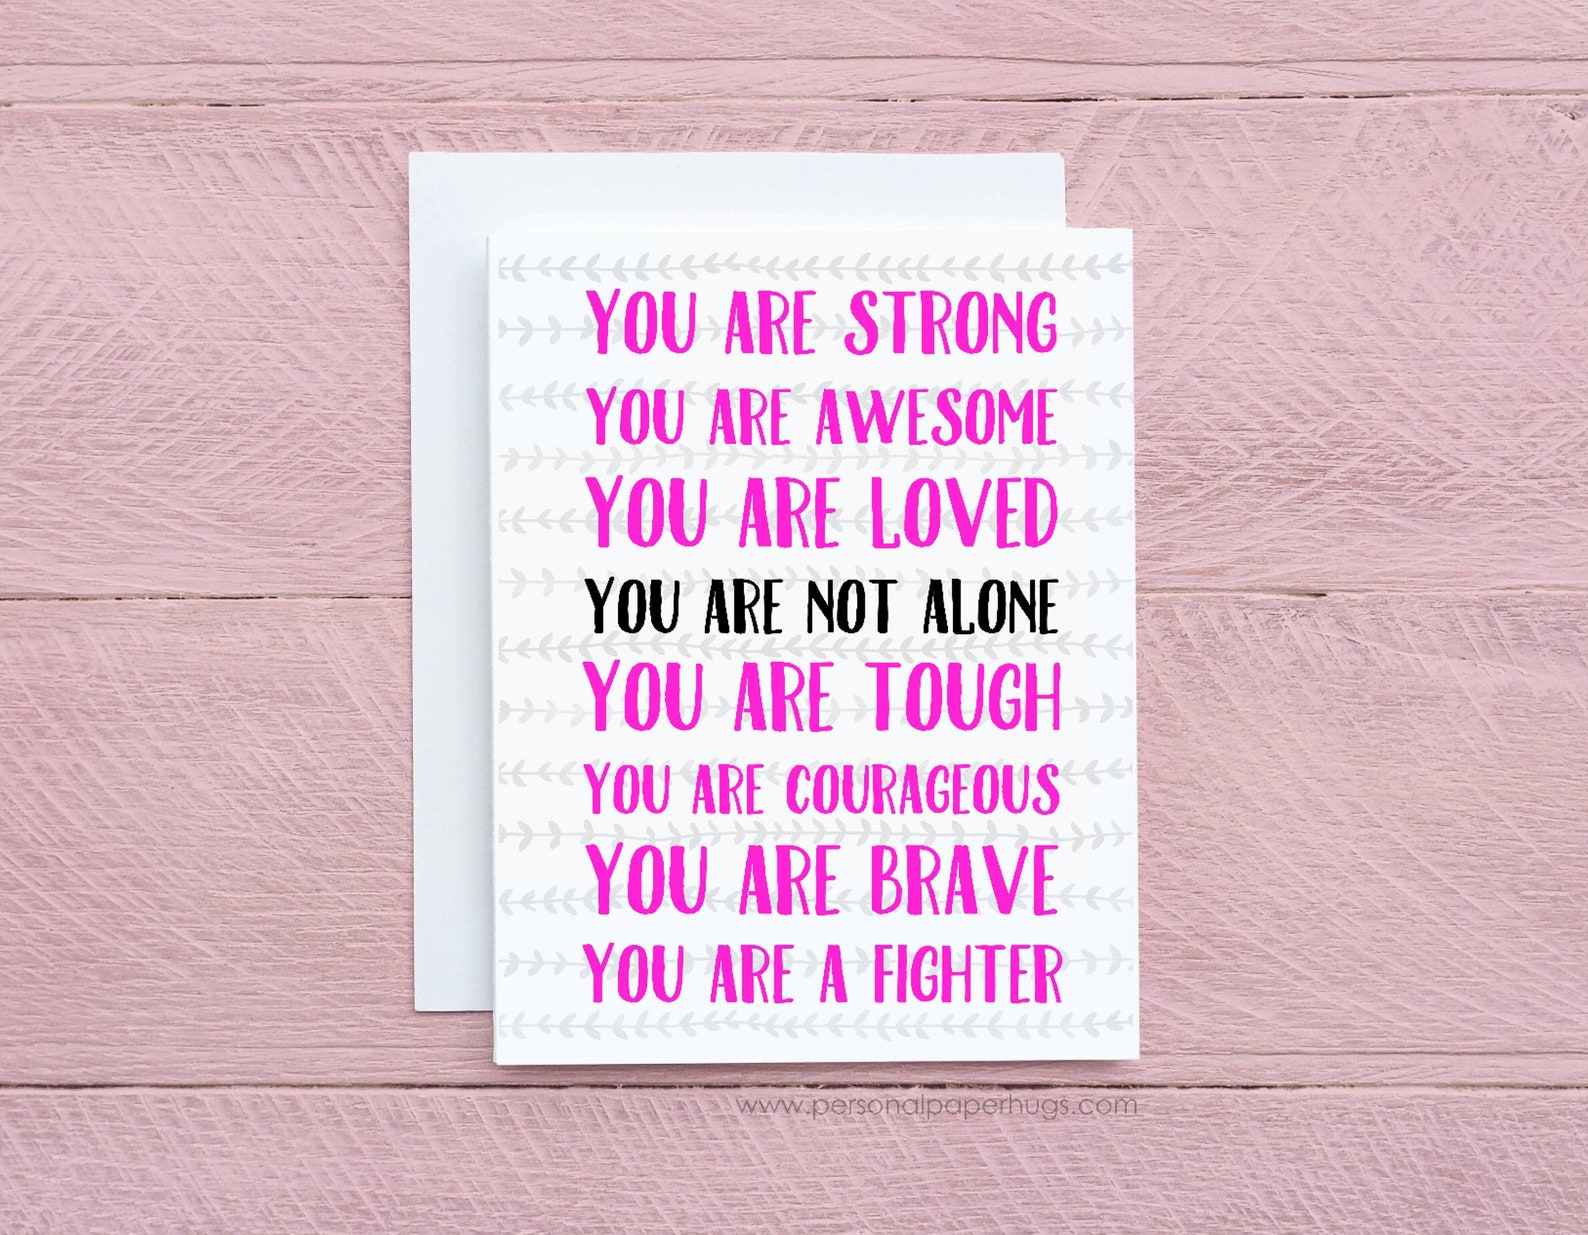 YOU ARE STRONG
YOU ARE AWESOME
YOU ARE LOVED
YOU ARE NOT ALONE
YOU ARE TOUGH
YOU ARE COURAGEOUS
YOU ARE BRAVE
YOU ARE A FIGHTER
www.personalpaperhugs.com